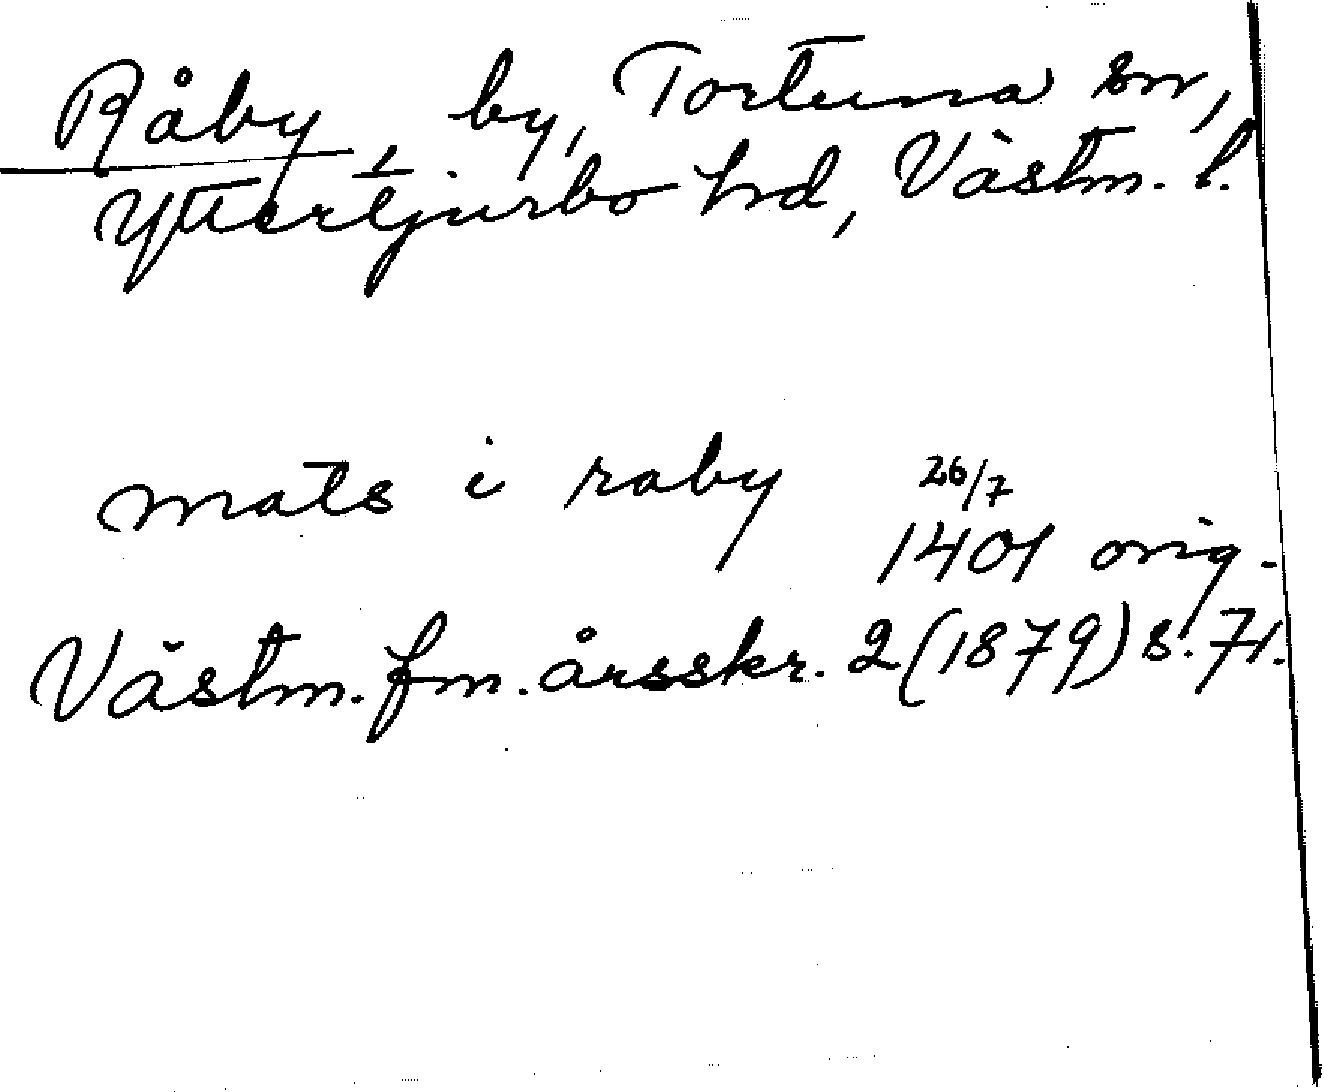 Råby, by, Tortuna sn,
Yttertjurbo hd, Västm. l.
mats i raby 26/7
1401 orig.
Västm. fm. årsskr. 2 (1879) s. 71.